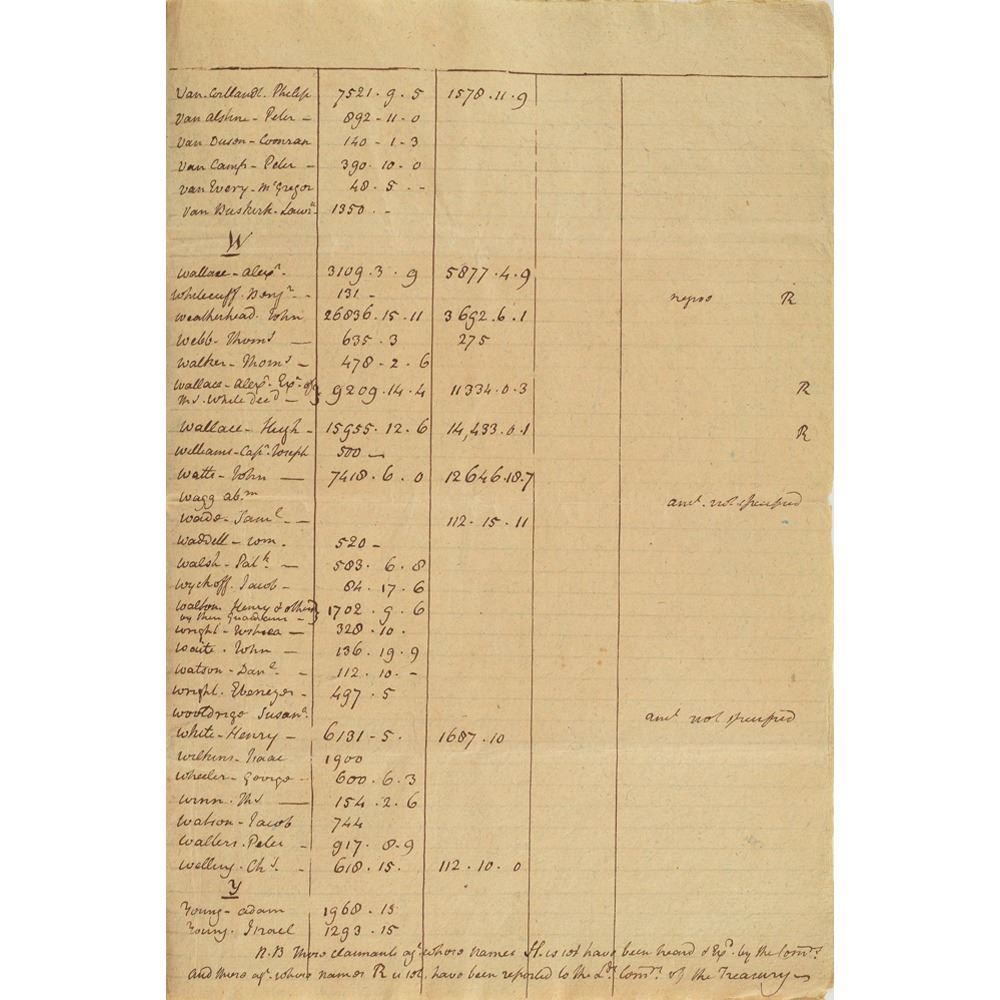 Van Cortlandt. Philip 7521 . 9 . 5 1578 . 11 . 9
Van Alstine - Peter - 892 - 11 - 0
Van Duson - Coonran 140 - 1 - 3
Van Camp - Peter - 390 . 10 . 0
Van Every - McGregor 48 . 5 . -
Van Buskirk - Lawr. 1350 . -
W
Wallace - Alexr. 3109 . 3 . 9 5877 . 4 . 9
Whitecuff. Benjn. - 131 - negro R
Weatherhead. John 26836 . 15 . 11 3692 . 6 . 1
Webb - Thoms — 635 . 3 275
Walker - Thoms - 478 - 2 . 6
Wallace - Alexr. Exr. of
Ms. White Decd — 9209 . 14 . 4 11334 . 0 . 3 R
Wallace - Hugh - 15955 . 12 . 6 14,433 . 0 . 1 R
Williams - Capn. Joseph 500 —
Watts - John — 7418 . 6 . 0 12646 . 18 . 7
Wagg abm amt. not specified
Wade - Saml. — 112 - 15 - 11
Waddell - Wm. 520 -
Walsh - Patk. - 583 . 6 . 8
Wyckoff. Jacob - 84 . 17 - 6
Walton Henry & others
by their Guardians - 1702 . 9 . 6
Wright - — 328 . 10 .
Waite . John - 136 . 19 . 9
Watson - Danl. - 112 . 10 . -
Wright. Ebenezer - 497 . 5
Wooldrige Susana. amt not specified
White - Henry - 6131 - 5 . 1687 . 10
Wilkins - Isaac 1900
Wheeler - George - 600 . 6 . 3
Winn . Ms — 154 . 2 . 6
Watson - Jacob 744
Walters . Peter - 917 . 8 - 9
Welling . Chs. - 618 . 15 . 112 . 10 . 0
Y
Young - Adam 1968 . 15
Young . Israel 1293 . 15
N.B Those claimants agt. whose names H. is set have been heard & Exd. by the Comrs.
and those agt. whose names R is set, have been reported to the Lds. Comrs. of the Treasury -